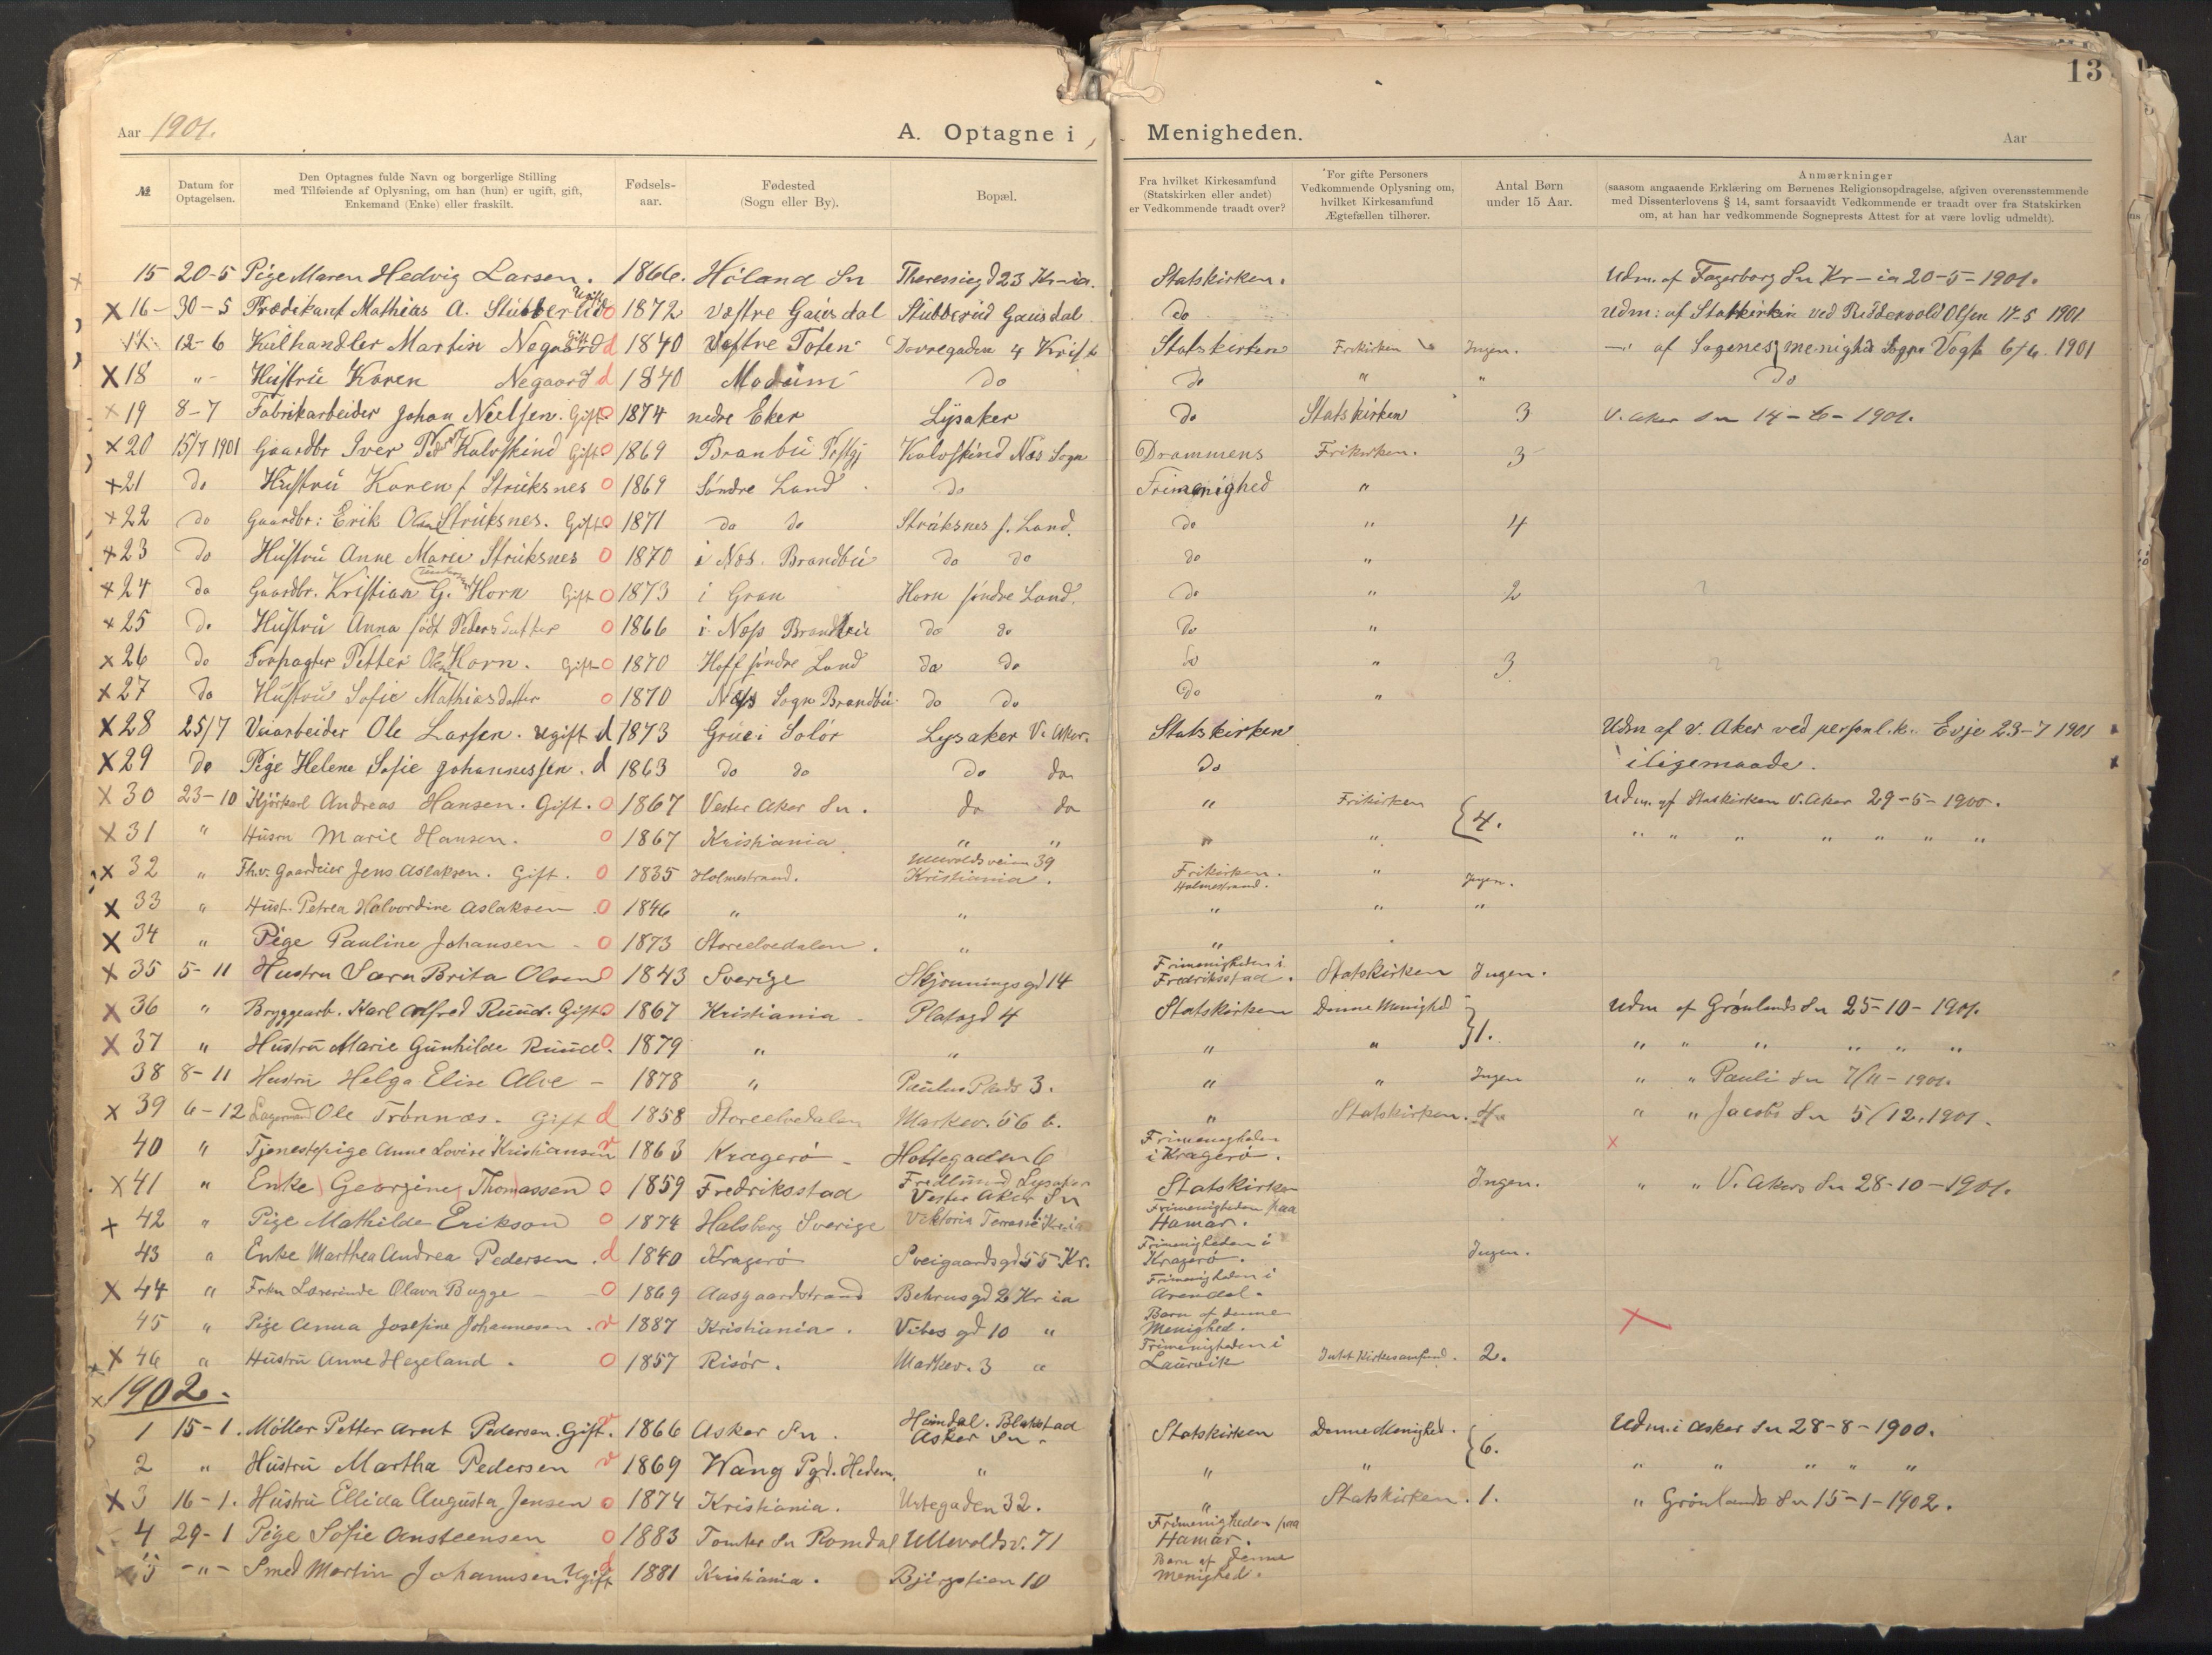 13
Aar 1901. A. Optagne i Menigheden. Aar
№ | Datum for Optagelsen. | Den Optagnes fulde Navn og borgerlige Stilling med Tilføiende af Oplysning, om han (hun) er ugift, gift, Enkemand (Enke) eller fraskilt. | Fødsels-aar. | Fødested (Sogn eller By). | Bopæl. | Fra hvilket Kirkesamfund (Statskirken eller andet) er Vedkommende traadt over? | For gifte Personers Vedkommende Oplysning om, hvilket Kirkesamfund Ægtefællen tilhører. | Antal Børn under 15 Aar. | Anmærkninger (saasom angaaende Erklæring om Børnenes Religionsopdragelse, afgiven overensstemmende med Dissenterlovens § 14, samt forsaavidt Vedkommende er traadt over fra Statskirken om, at han har vedkommende Sogneprests Attest for at være lovlig udmeldt).
15 20-5 Pige Maren Hedvig Larsen. 1866. Høland Sn Theressiegd 23 Kr-ia. Statskirken. Udm. af Fagerborg Sn Kr-ia 20-5-1901.
X 16- 30-5 Prædikant Mathias A. Stubberud Ugift o 1872 Vestre Gausdal Stubberud Gausdal do Udm: af Statskirken ved Riddervold Olsen 17-5 1901
17. 12-6 Kulhandler Martin Negaard Gift d 1840 Vestre Toten Dovregaden 4 Krist Statskirken Frikirken Ingen. -" af Sagenes menighed Sogpr Vogt 6/6. 1901
X 18 " Hustru Karen Negaard d 1840 Modum do do " " do
X 19 8-7 Fabrikarbeider Johan Neelsen. Gift o 1874 nedre Eker Lysaker do Statskirken 3 V. Aker Sn 14-6-1901.
X 20 15/7 1901 Gaardbr Iver Peder Kalvskind Gift o 1869 Branbu Prstgj Kalvskind Næs Sogn Drammens Frikirken. 3
+ 21 do Hustru Karen f Struksnes o 1869 Søndre Land do Frimenighed "
+ 22 do Gaardbr: Erik Olsen Struksnes. Gift o 1871 do do Struksnes s. Land. do " 4
+ 23 do Hustru Anne Marie Struksnes o 1870 i Næs. Brandbu do do do "
+ 24 do Gaardbr. Kristian G. Horn Gift o 1873 i Gran Horn søndre Land. do " 2
+ 25 do Hustru Anna født Pedersdatter o 1866 i Næss Brandbu do do do "
X 26 do Forpagter Petter Olsen Horn. Gift o 1870 Hoff søndre Land do do do " 3
X 27 do Hustru Sofie Mathiasdatter o 1870 Næs Sogn Brandbu do do do "
X 28 25/7 Veiarbeider Ole Larsen. Ugift d 1873 Grue i Solør Lysaker V. Aker. Statskirken Udm af V. Aker ved personl. k. Evje 23-7 1901
X 29 do Pige Helene Sofie Johannessen. d 1863 do do do do do iligemaade.
X 30 23-10 Kjørkarl Andreas Hansen. Gift. o 1867 Vester Aker Sn. do do " Frikirken { 4. Udm. af Statskirken V. Aker 29-5-1900.
X 31 " Husru Marie Hansen. o 1867 Kristiania " " " " " " " " " " "
X 32 " Fhv. Gaardeier Jens Aslaksen. Gift. o 1835 Holmestrand. Ullevoldsveien 39 Kristiania. Frikirken. Holmestrand. " Ingen.
X 33 " Hust. Petrea Halvordine Aslaksen o 1846 " " " " "
X 34 " Pige Pauline Johansen - o 1873 Storelvedalen. " "
X 35 5-11 Hustru Sara Brita Olsen o 1843 Sverige Skjønningsgd 14 Frimenigheden i Fredriksstad. Statskirken Ingen.
X 36 " Bryggearb. Karl Alfred Ruud. Gift o 1867 Kristiania - Platogd 4 Statskirken Denne Menighed } 1. Udm af Grønlands Sn 25-10-1901.
X 37 " Hustru Marie Gunhilde Ruud. o 1879 " " " " " " " " " "
38 8-11 Hustru Helga Elise Alve - 1878 " Paulus Plads 3. " " Ingen " " Pauli Sn 7/11-1901.
X 39 6-12 Lagermand Ole Trønnæs. Gift d 1858 Storelvedalen Markev. 56 b. " Statskirken. 4. " " Jacobs Sn 5/12.1901.
40 " Tjenestepige Anne Lovise Kristiansen v 1863 Kragerø - Holtegaden 6 Frimenigheden i Kragerø. X
X 41 " Enke Georgine Thomassen o 1859 Fredriksstad Fredlund Lysaker Vester Aker Sn Statskirken Ingen. " " V. Akers Sn 28-10-1901.
+ 42 " Pige Mathilde Erikson o 1874 Halsberg Sverige Viktoria Terrasse Kr.ia Frimenigheden paa Hamar.
43 " Enke Marthea Andrea Pedersen. d 1840 Kragerø Sveigaardsgd 55 Kr. Frimenigheden i Kragerø. Ingen.
X 44 " Frkn Lærerinde Olava Bugge - o 1869 Aasgaardstrand Behrnsgd 2 Kr ia Frimenigheden i Arendal.
45 " Pige Anna Josefine Johannesen. v 1887 Kristiania. Vibes gd 10 " Barn af denne Menighed. X
X 46 " Hustru Anne Hegeland. o 1857 Risør. Markev. 3 " Frimenigheden i Laurvik Intet Kirkesamfund. 2.
1902.
1 15-1. Møller Petter Arnt Pedersen. Gift. v 1866 Asker Sn. Heimdal. Blakstad Asker Sn. Statskirken Denne Menighed. { 6. Udm. i Asker Sn 28-8-1900.
2 " Hustru Martha Pedersen v 1869 Wang Pgd. Hedem. " " " " " " " "
X 3 16-1. Hustru Ellida Augusta Jensen o 1874 Kristiania. Urtegaden 32. " Statskirken. 1. " Grønlands Sn 15-1-1902.
4 29-1 Pige Sofie Ansteensen o 1883 Tomter Sn Romdal Ullevoldsv. 71 Frimenigheden paa Hamar.
5 -"- Smed Martin Johannsen. Ugift d 1881 Kristiania. Bjergstien 10 Barn af denne menighed.